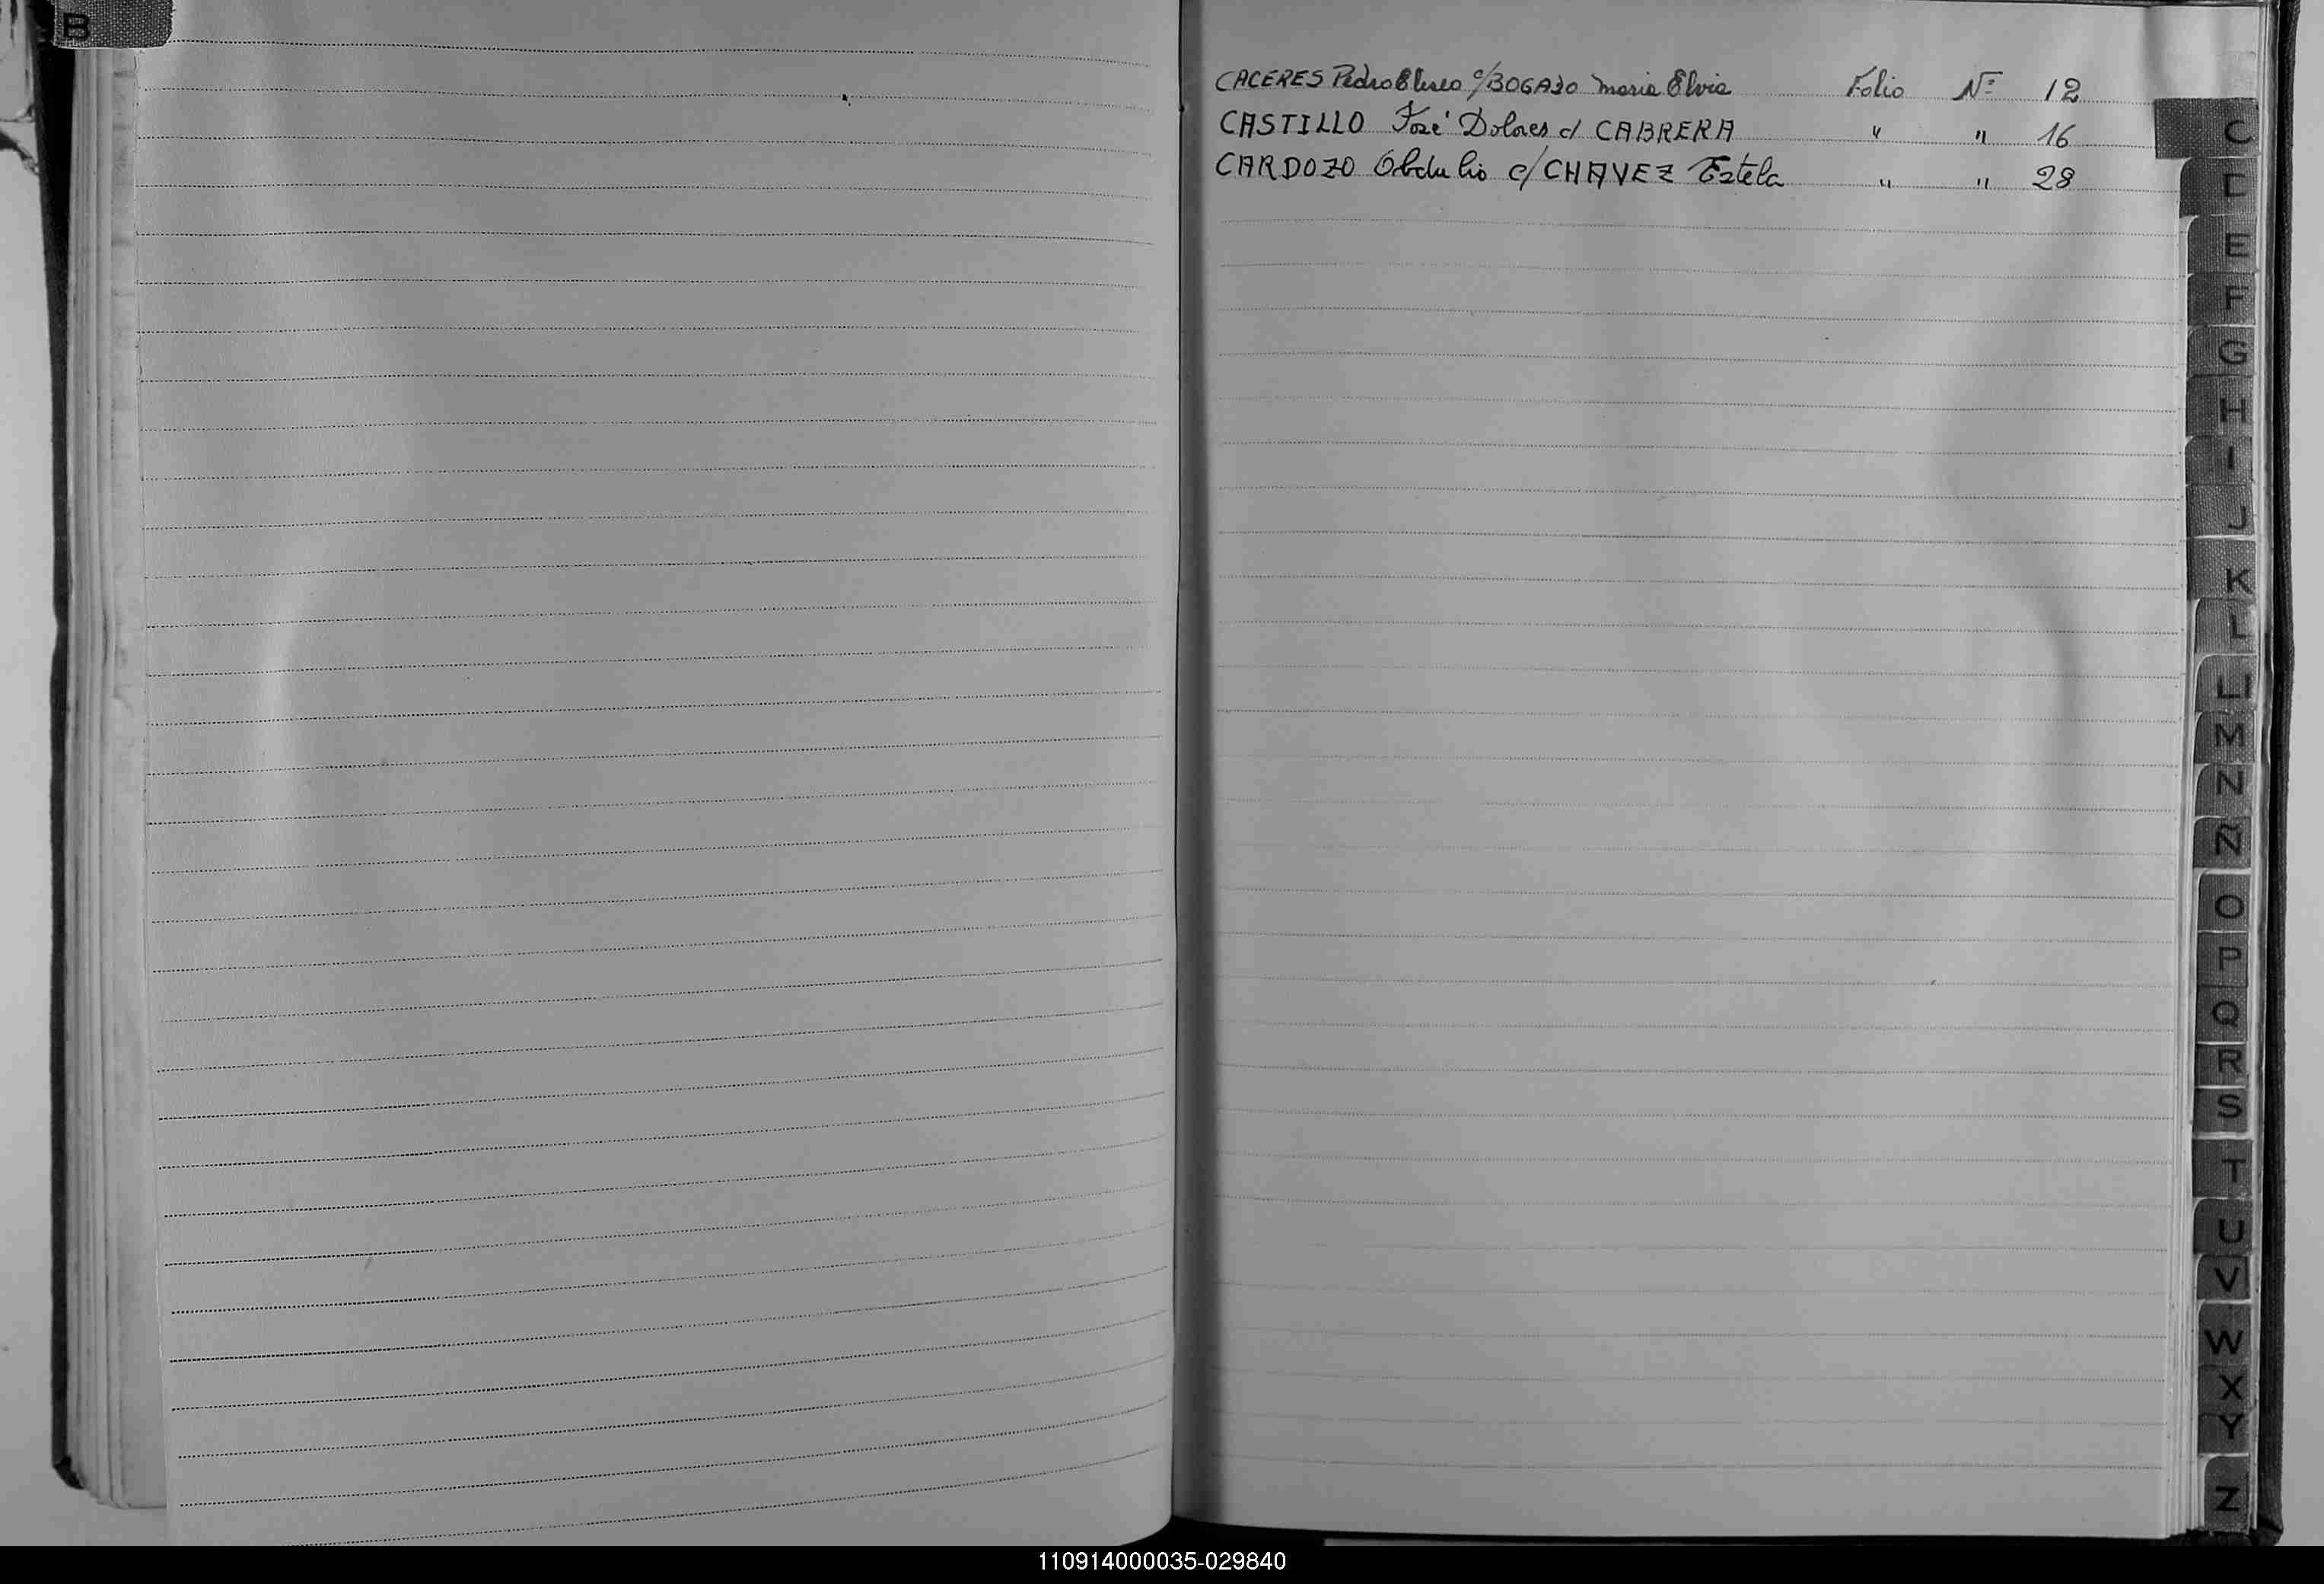 B
CACERES Pedro Eliseo c/BOGADO Maria Elvia Folio Nº 12
CASTILLO José Dolores c/ CABRERA " " 16
CARDOZO Obdulio c/CHAVEZ Estela " " 28
C
D
E
F
G
H
I
J
K
L
LL
M
N
Ñ
O
P
Q
R
S
T
U
V
W
X
Y
Z
110914000035-029840